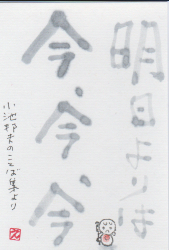 明日よりは
今、今、今
小池邦夫のことば集より